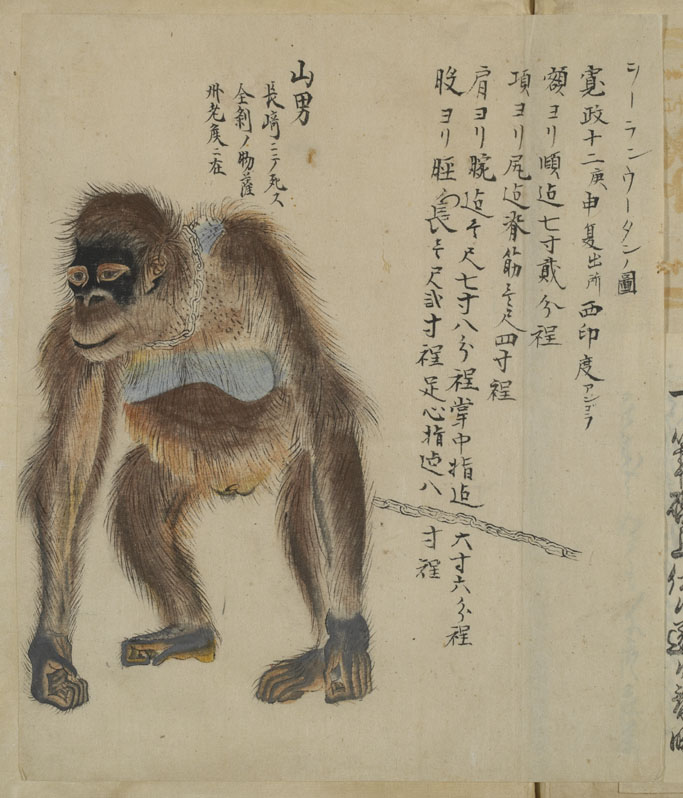 シーランウータンノ圖
寛政十二庚申夏出所西印度アンゴラ
額ヨリ頤迠七寸貳分程
項ヨリ尻迠脊筋壱尺四寸程
肩ヨリ腕迠壱尺七寸八分程掌中指迠六寸六分程
股ヨリ脛長壱尺弐寸程足心指迠八寸程
山男
長崎ニテ死ス
全剝ノ物薩
州老矦ニ在